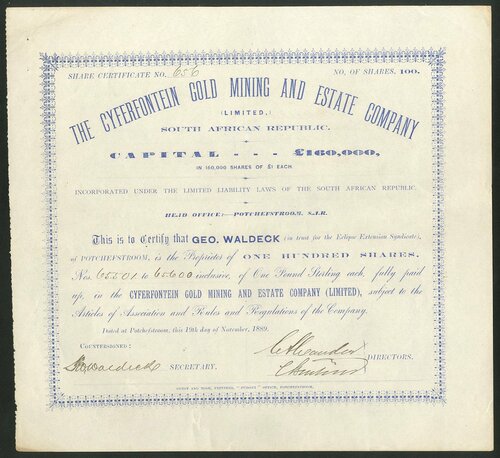 SHARE CERTIFICATE NO. 656 NO. OF SHARES, 100.
THE CYFERFONTEIN GOLD MINING AND ESTATE COMPANY
(LIMITED,)
SOUTH AFRICAN REPUBLIC.
CAPITAL - - - £160,000,
IN 160,000 SHARES OF £1 EACH.
INCORPORATED UNDER THE LIMITED LIABILITY LAWS OF THE SOUTH AFRICAN REPUBLIC.
HEAD OFFICE:—POTCHEFSTROOM, S.A.R.
This is to Certify that GEO. WALDECK (in trust for the Eclipse Extension Syndicate),
of POTCHEFSTROOM, is the Proprietor of ONE HUNDRED SHARES,
Nos. 65501 to 65600 inclusive, of One Pound Sterling each, fully paid
up, in the CYFERFONTEIN GOLD MINING AND ESTATE COMPANY (LIMITED), subject to the
Articles of Association and Rules and Regulations of the Company.
Dated at Potchefstroom, this 19th day of November, 1889.
COUNTERSIGNED:
Waldeck SECRETARY.
DIRECTORS.
PRINTERS, "BUDGET" OFFICE, POTCHEFSTROOM.